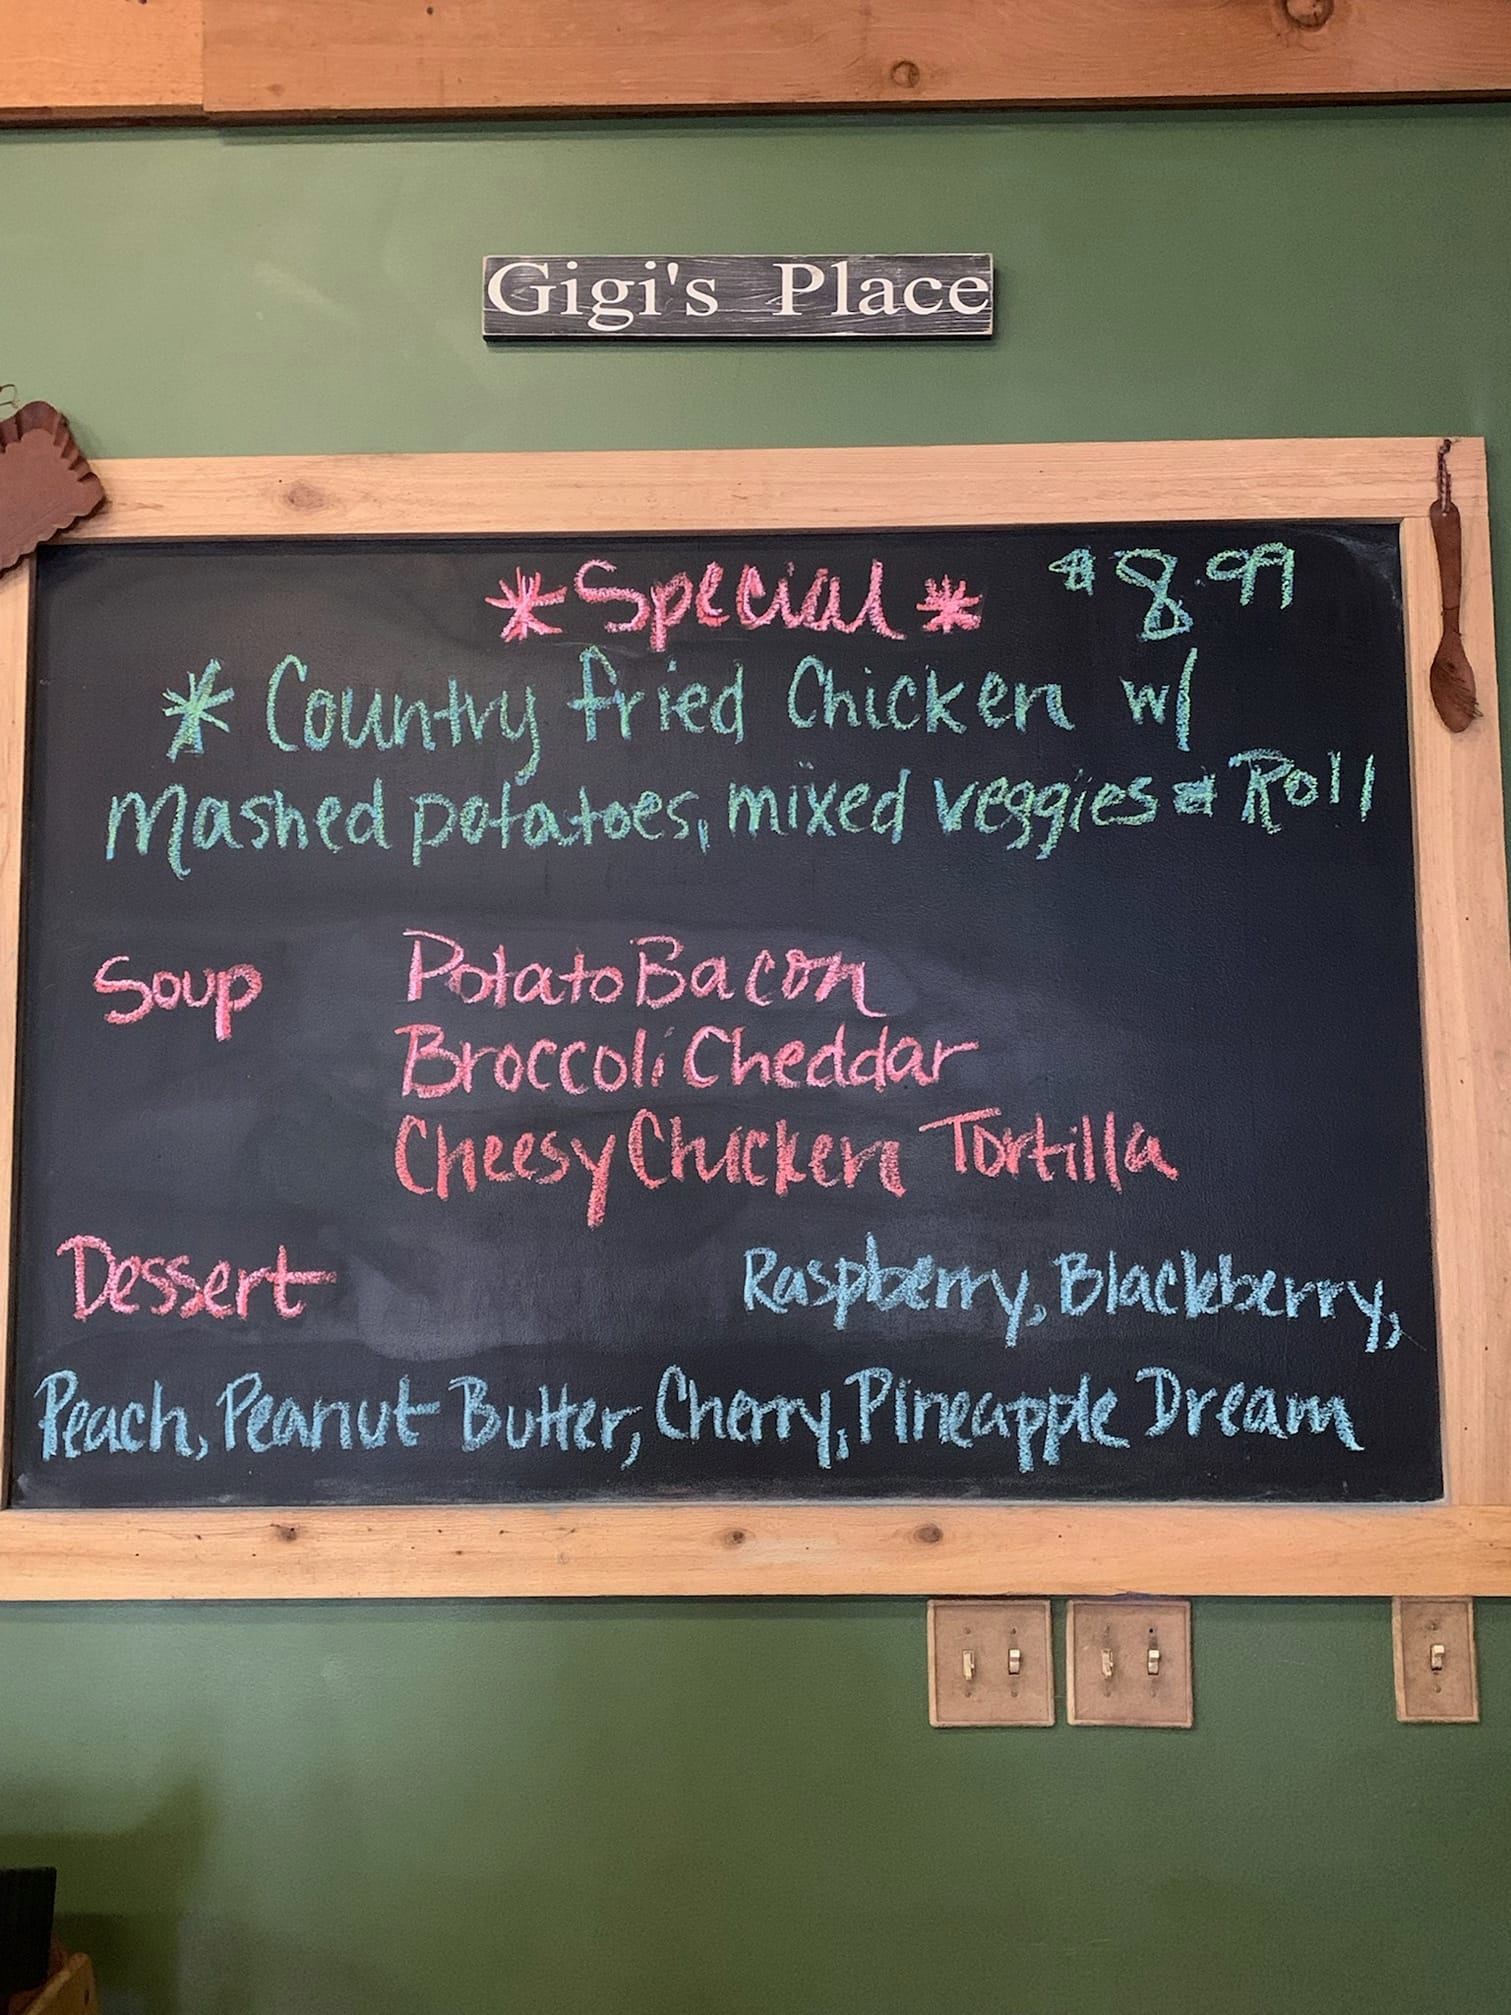 Gigi's Place
*Special* $8.99
* Country fried Chicken w/
Mashed potatoes, mixed veggies & Roll
Soup Potato Bacon
Broccoli Cheddar
Cheesy Chicken Tortilla
Dessert Raspberry, Blackberry,
Peach, Peanut Butter, Cherry, Pineapple Dream